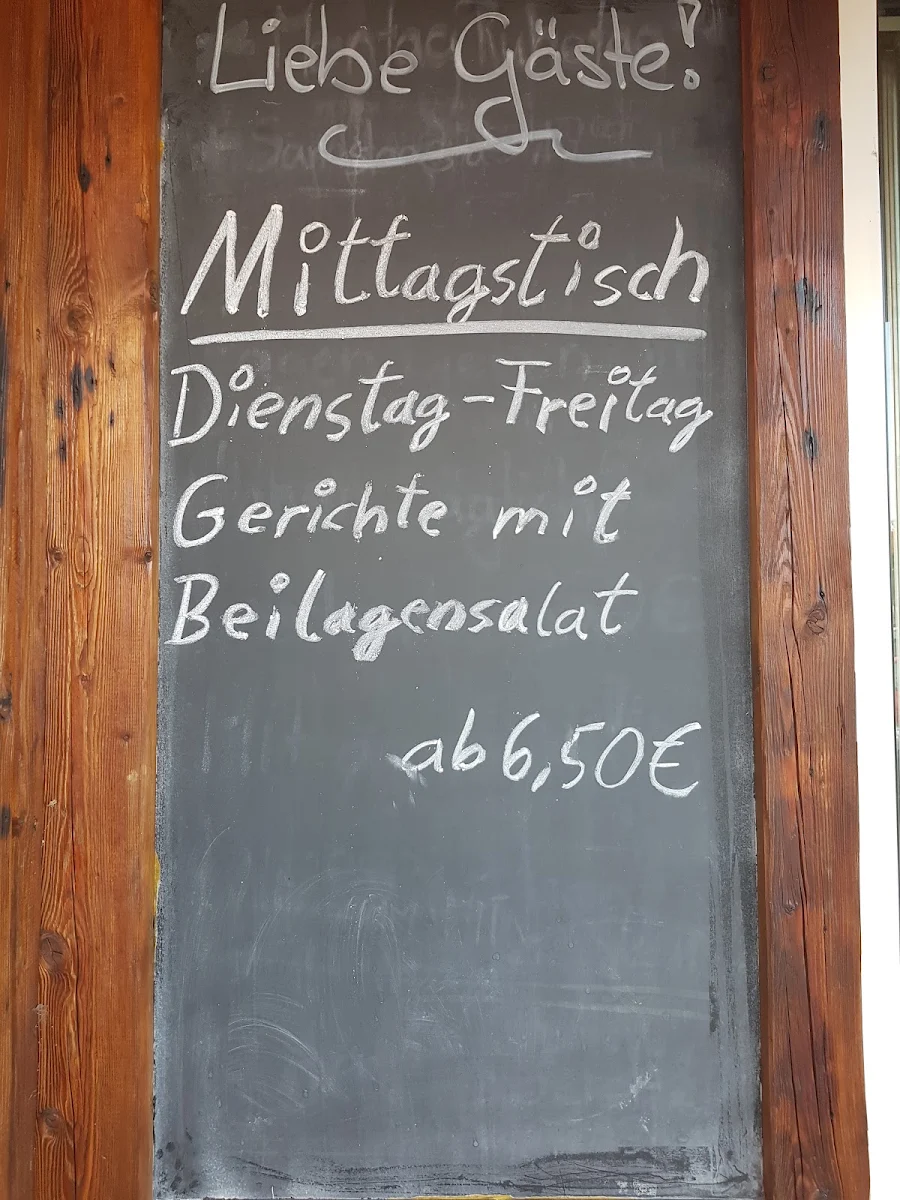 Liebe Gäste!
Mittagstisch
Dienstag-Freitag
Gerichte mit
Beilagensalat
ab 6,50€